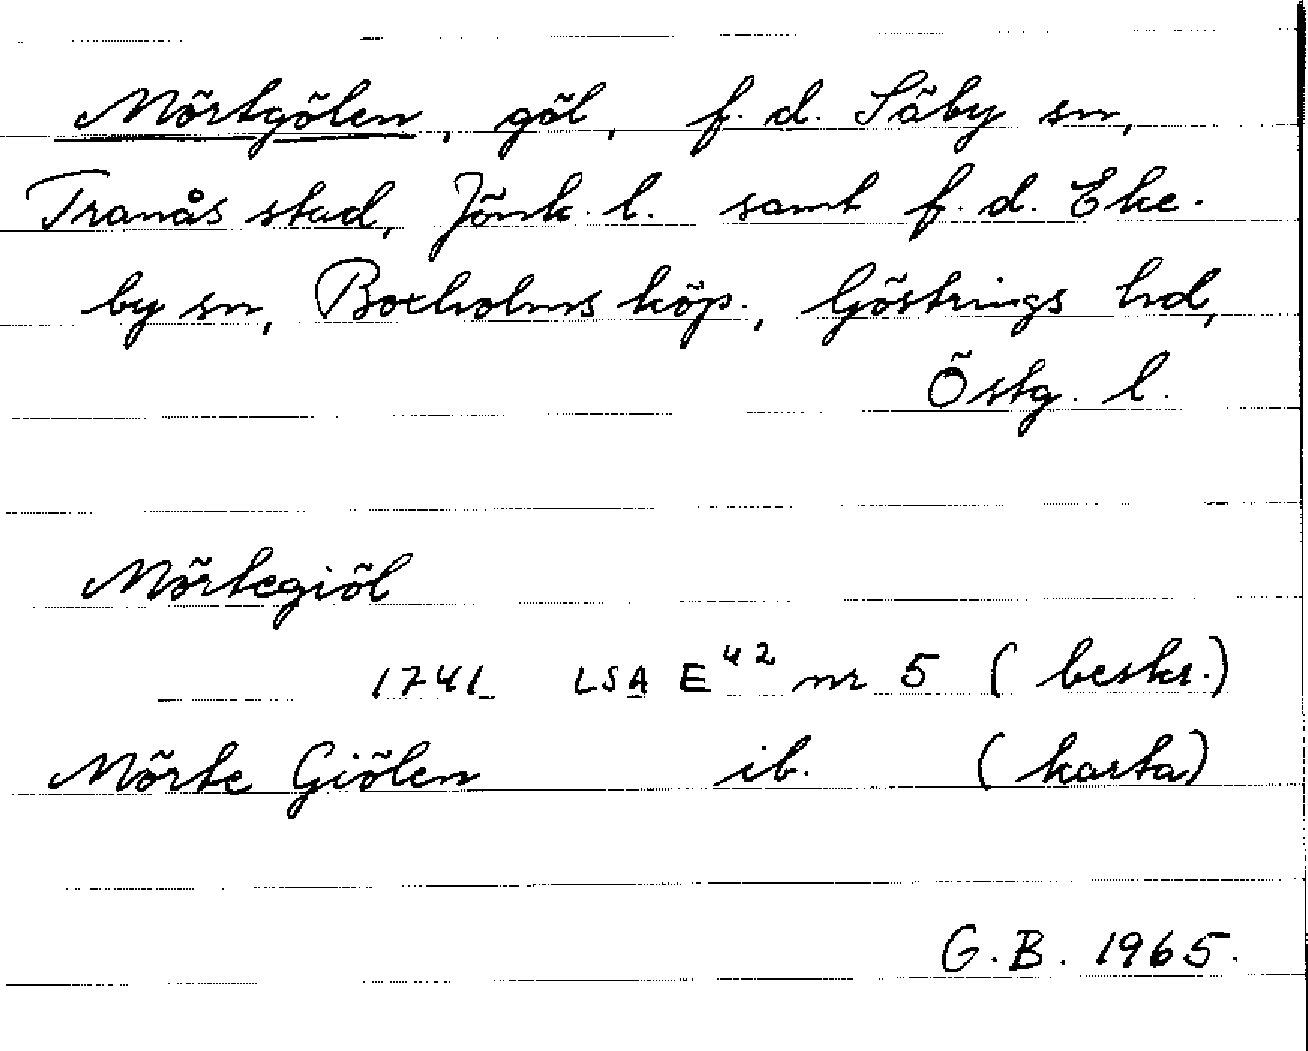 Mörtgölen, göl, f. d. Säby sn,
Tranås stad, Jönk. l. samt f. d. Eke-
by sn, Boxholms köp., Göstrings hd,
Östg. l.
Mörtegiöl
1741 LSA E⁴² nr 5 (beskr.)
Mörte Giölen ib. (karta)
G.B. 1965.